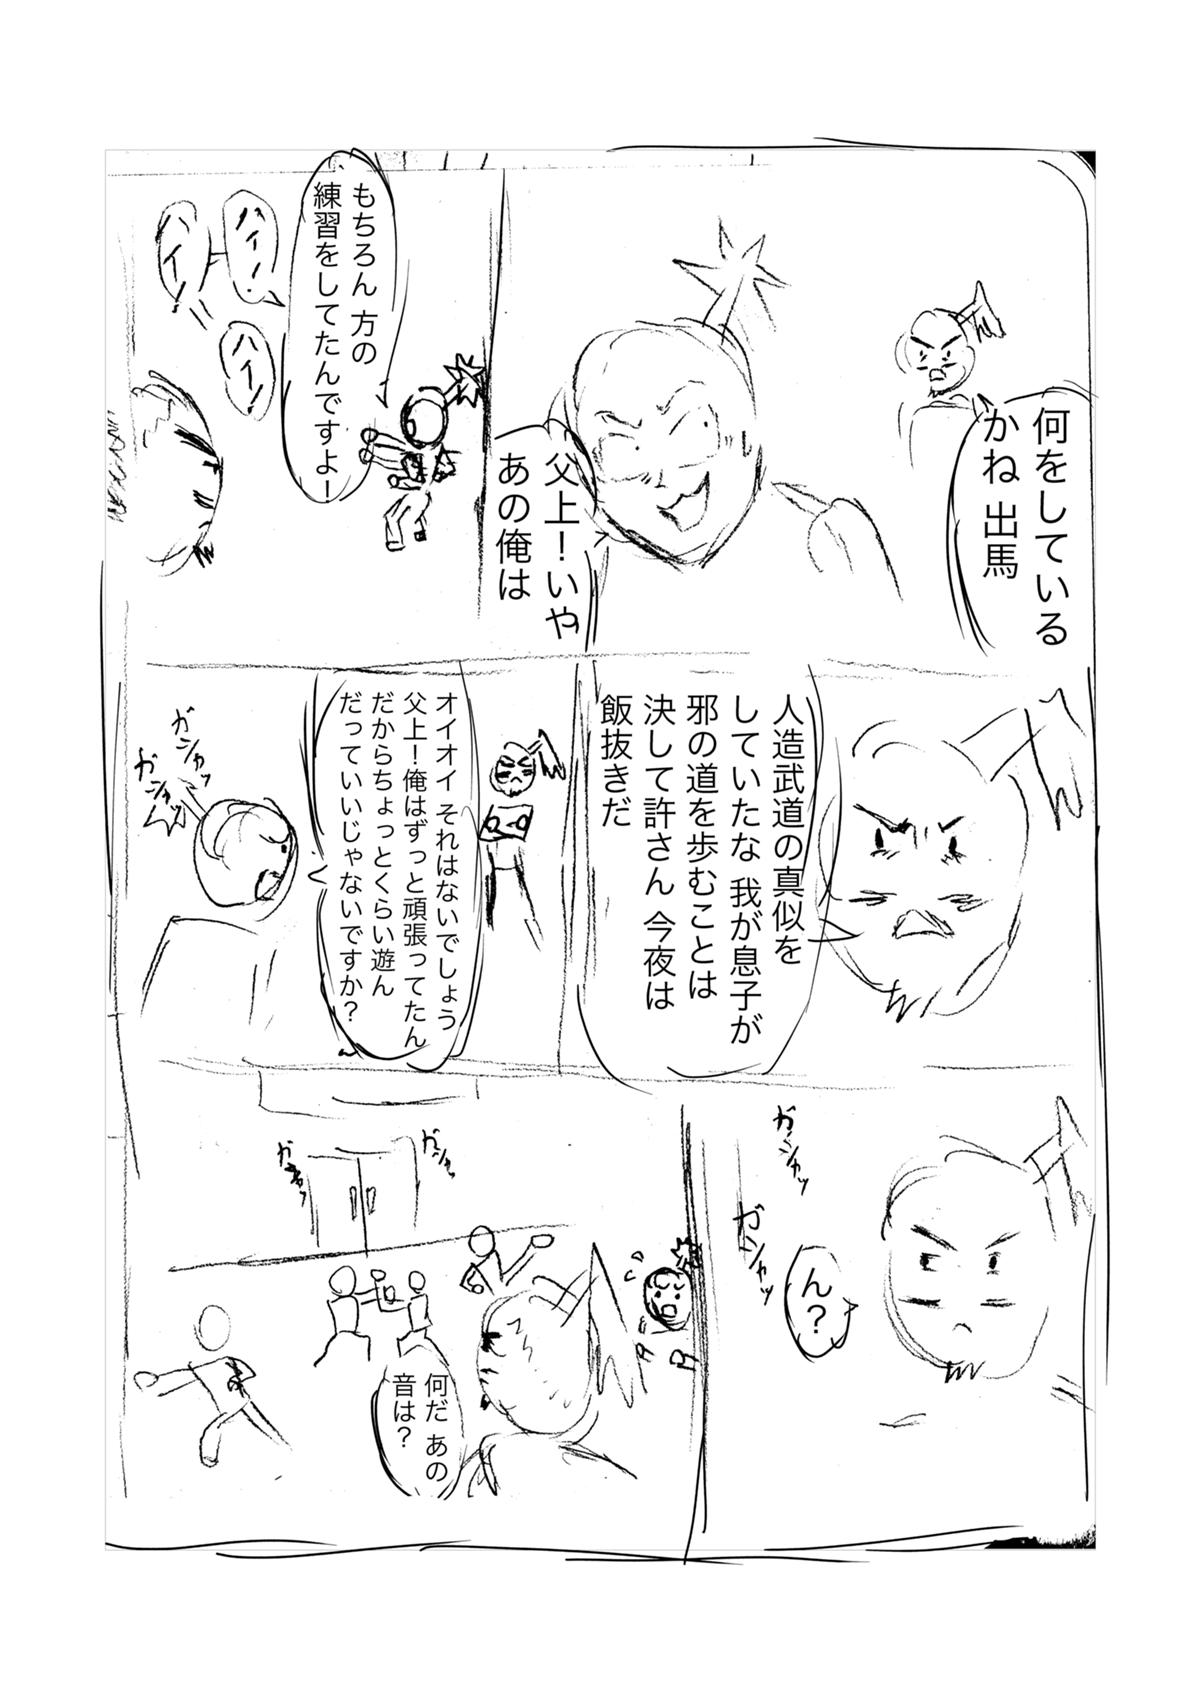 何をしている
かね 出馬
父上！いや
あの俺は
もちろん 方の
練習をしてたんですよー
ハイ！
ハイ！
ハイ！
人造武道の真似を
していたな 我が息子が
邪の道を歩むことは
決して許さん 今夜は
飯抜きだ
オイオイ それはないでしょう
父上！俺はずっと頑張ってたん
だからちょっとくらい遊ん
だっていいじゃないですか？
ガンャッ
ガンャッ
ガンャッ
ガンャッ
ん？
何だ あの
音は？